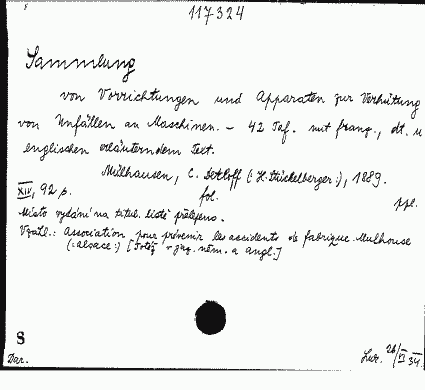 117324
Sammlung
von Vorrichtungen und Apparaten zur Verhütung
von Unfällen an Maschinen. – 42 Taf. mit franz., dt. u
englischen erläuterndem Text.
Mülhausen, C. Detloff (: H. Stückelberger :), 1889.
XIV, 92 p. fol. ppl.
Místo vydání na titul. listě přelepeno.
Vydtl.: Association pour prévenir les accidents de fabrique Mulhouse
(: Alsace :) [Totéž v jaz. něm. a angl.]
8
Dar. Lur. 26/VI 34.